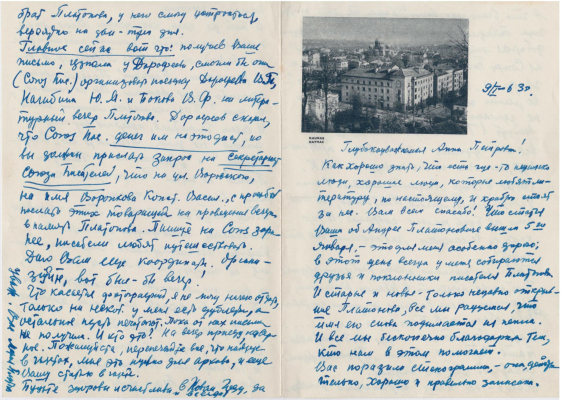 брат Платонова, у него смогу устроиться,
вероятно на два - три дня.
Главное сейчас вот что: получив Ваше
письмо, узнала у Дорофеева, сможет ли он
(Союз Пис.) организовать поездку Дорофеева В.П.
Нагибина Ю.М. и Бокова В.Ф. на литера-
турный вечер Платонова. Дорофеев сказал,
что Союз Пис. денег им на это даст, но
вы должны прислать запрос на Секретариат
Союза Писателей, что на ул. Воровского,
на имя Воронкова Конст. Васил., с просьбой
послать этих товарищей на проведение вечера
в память Платонова. Пишите на Союз зара-
нее, писатели любят путешествовать.
Даю Вам ещё координаты.
вот был-бы вечер!
Что касается фотографий, я не могу ничего
Только на некот. у меня есть дубликаты, а
остальные надо печатать. Пока от них письма
не получила. И кто это? На вечер приеду навер-
ное. Пожалуйста, перепечатайте все, что
мне это нужно для архива, и ещё
Вашу статью
Будьте здоровы и счастливы в Новом Году, да
и всегда
KAUNAS
КАУНАС
9/I-63г.
Глубокоуважаемая Анна Петровна!
Как хорошо знать, что есть где-то
люди, хорошие люди, которые любят ли-
тературу, по настоящему, и храбро стоят
за нее. Вам всем спасибо! Что статья
Ваша об Андрее Платоновиче вышла 5го
января, - это для меня особенно дорого;
в этот день всегда у меня собираются
друзья и поклонники писателя Платонова
И старые и новые - только недавно открыв-
шие Платонова, все мы радуемся, что
имя его снова поднимается из пепла.
И все мы бесконечно благодарны тем,
кто нам в этом помогает.
Вас поразила стенограмма, - она, действи-
тельно, хорошо и правильно записана.